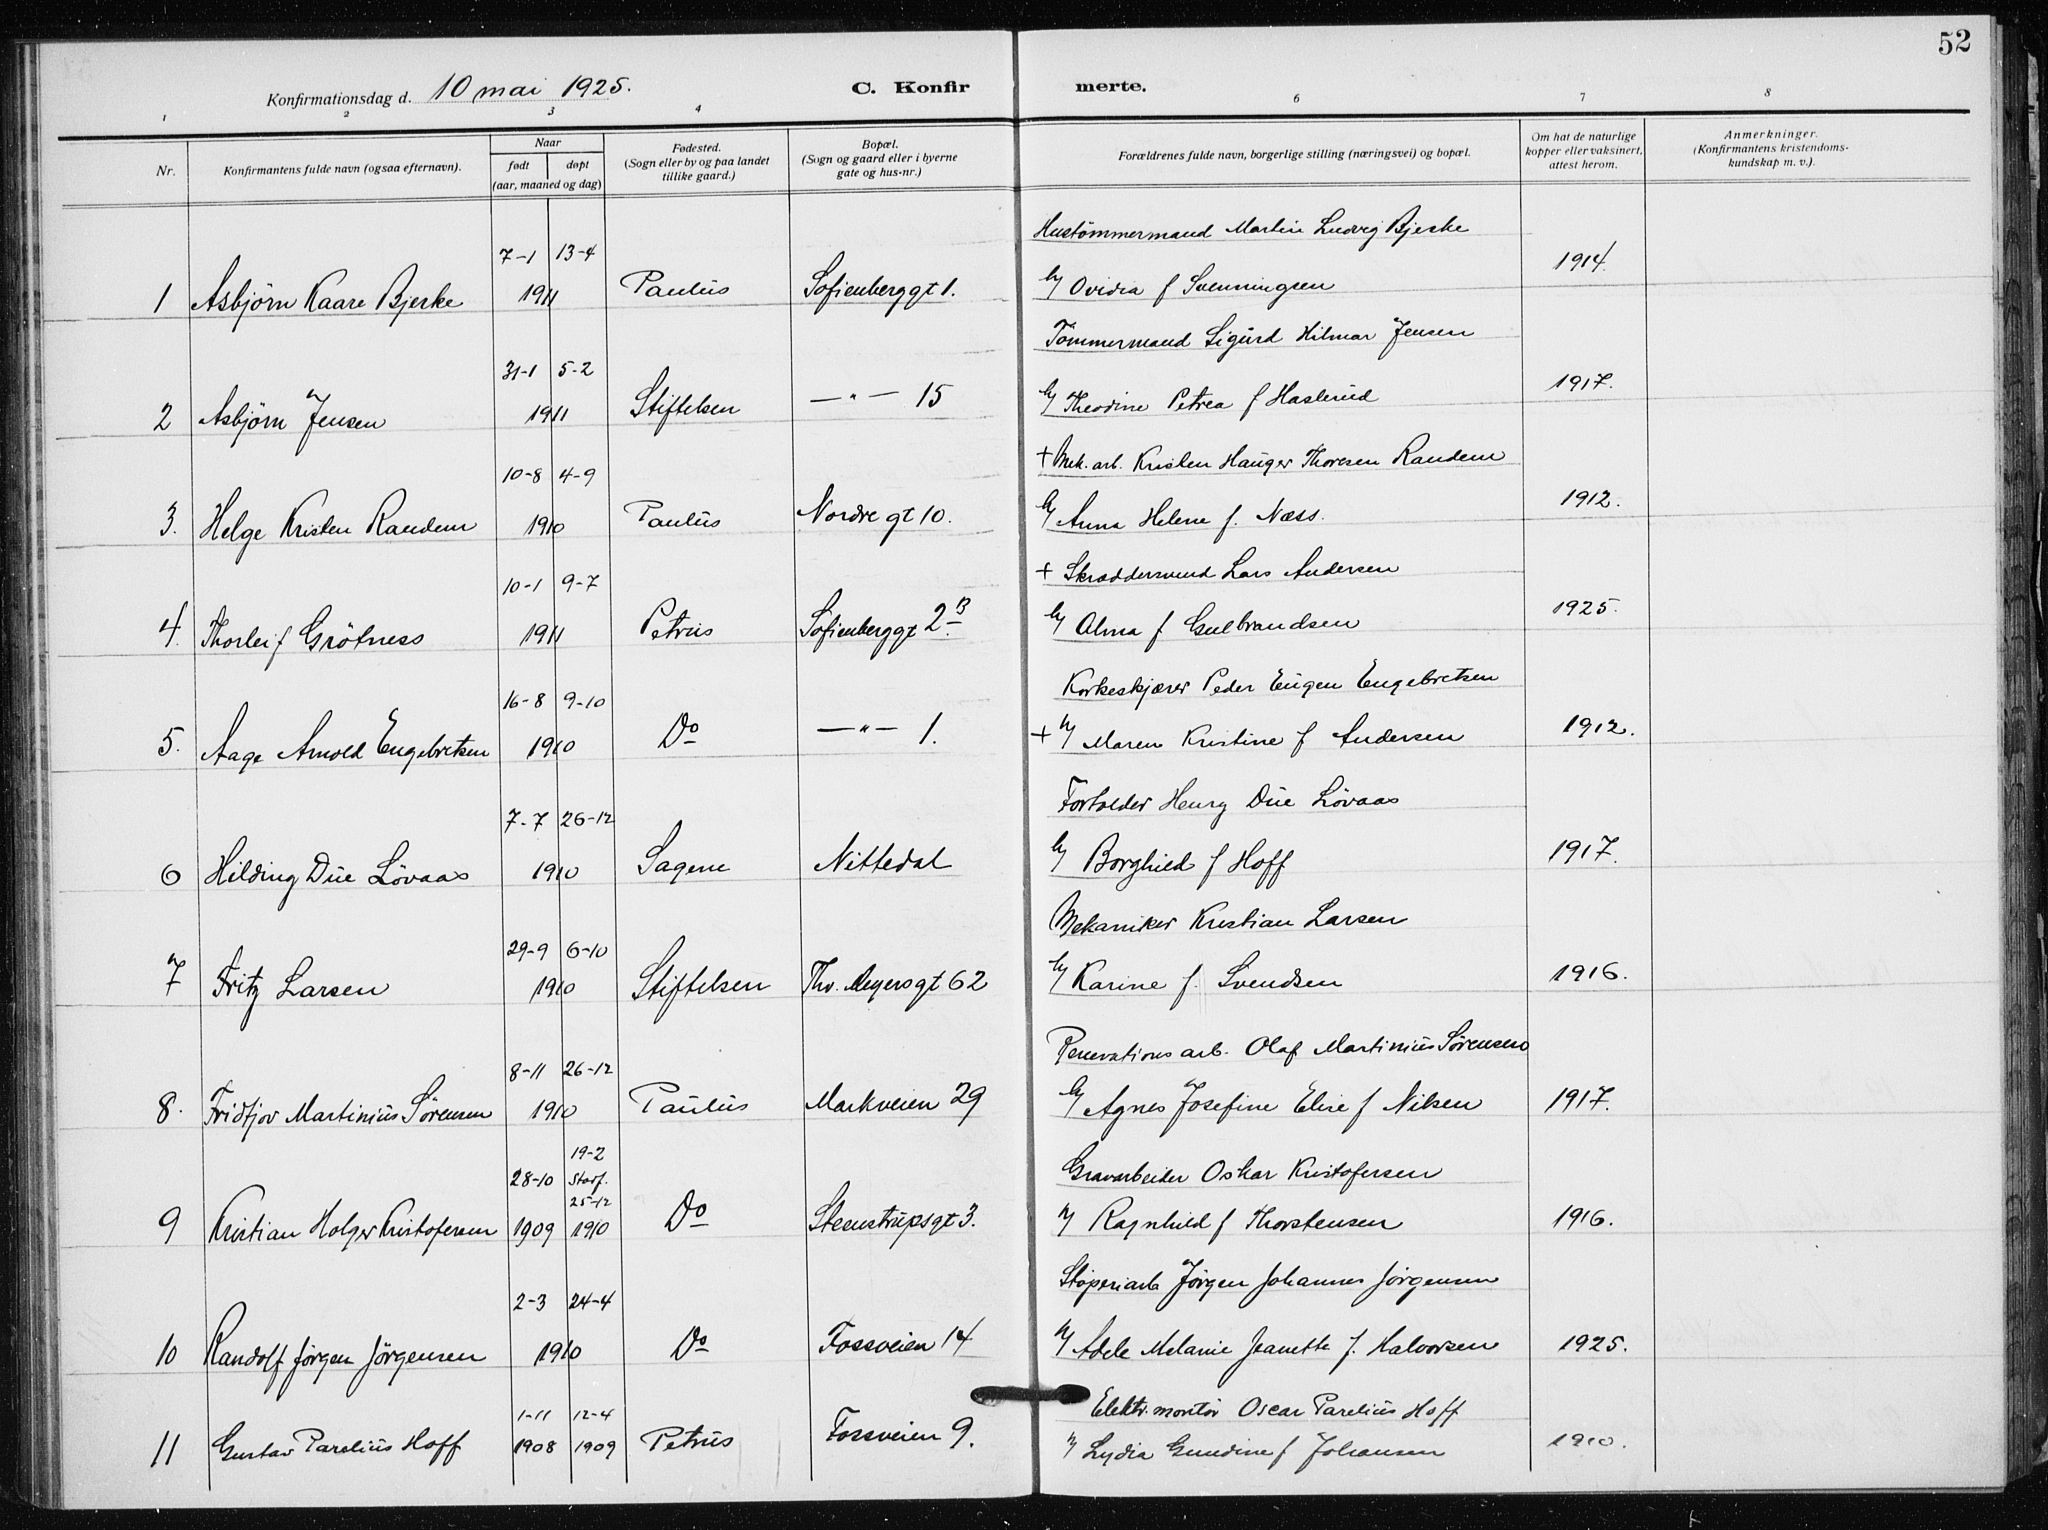 52
Konfirmationsdag d. 10 mai 1925.
C. Konfirmerte.
1 2 3 4 6 7 8
Nr.
Konfirmantens fulde navn (ogsaa efternavn).
Naar
født døpt
(aar, maaned og dag)
Fødested.
(Sogn eller by og paa landet
tillike gaard.)
Bopæl.
(Sogn og gaard eller i byerne
gate og hus-nr.)
Forældrenes fulde navn, borgerlige stilling (næringsvei) og bopæl.
Om hat de naturlige
kopper eller vaksinert,
attest herom.
Anmerkninger.
(Konfirmantens kristendoms-
kundskap m. v.).
Hustömmermand Martin Ludvig Bjerke
7-1 13-4
1 Asbjörn Kaare Bjerke 1911 Paulus Sofienberggt 1. h/ Ovidia f Svenningsen 1914.
Tömmermand Sigurd Hilmar Jensen
31-1 5-2
2 Asbjörn Jensen 1911 Stiftelsen —"— 15 h/ Theodine Petrea f Haslerud 1917.
+ Mek. arb. Kristen Hauger Thoresen Randem
10-8 4-9
3. Helge Kristen Randem 1910 Paulus Nordre gt 10. h/ Anna Helene f. Næss. 1912.
+ Skræddersvend Lars Andersen
10-1 9-7
4. Thorleif Grötness 1911 Petrus Sofienberggt 2B. h/ Alma f Gulbrandsen 1925.
Korkeskjærer Peder Eugen Engebretsen
16-8 9-10
5. Aage Arnold Engebretsen 1910 Do —"— 1. + h/ Maren Kristine f Andersen 1912.
Forholder Henry Due Lövaas
7-7 26-12
6 Hilding Due Lövaas 1910 Sagene Nittedal h/ Borghild f Hoff 1917.
Mekaniker Kristian Larsen
29-9 6-10
7 Fritz Larsen 1910 Stiftelsen Thv. Meyersgt 62 h/ Karine f. Svendsen 1916.
Renovations arb. Olaf Martinius Sörensen
8-11 26-12
8. Fridtjov Martinius Sörensen 1910 Paulus Markveien 29 h/ Agnes Josefine Elise f Nilsen 1917.
19-2
Gravarbeider Oskar Kristofersen
28-10 Stadf.
25-12
9 Kristian Holger Kristofersen 1909 1910 Do Steenstrupsgt 3. h/ Ragnhild f Thorstensen 1916.
Stöperiarb Jörgen Johannes Jörgensen
2-3 24-4
10 Randolf Jörgen Jörgensen 1910 Do Fossveien 14 h/ Adele Melanie Jeanette f. Halvorsen 1925.
Elektr. montör Oscar Parelius Hoff
1-11 12-4
11 Gustav Parelius Hoff 1908 1909 Petrus Fossveien 9. h/ Lydia Gundine f Johansen 1910.